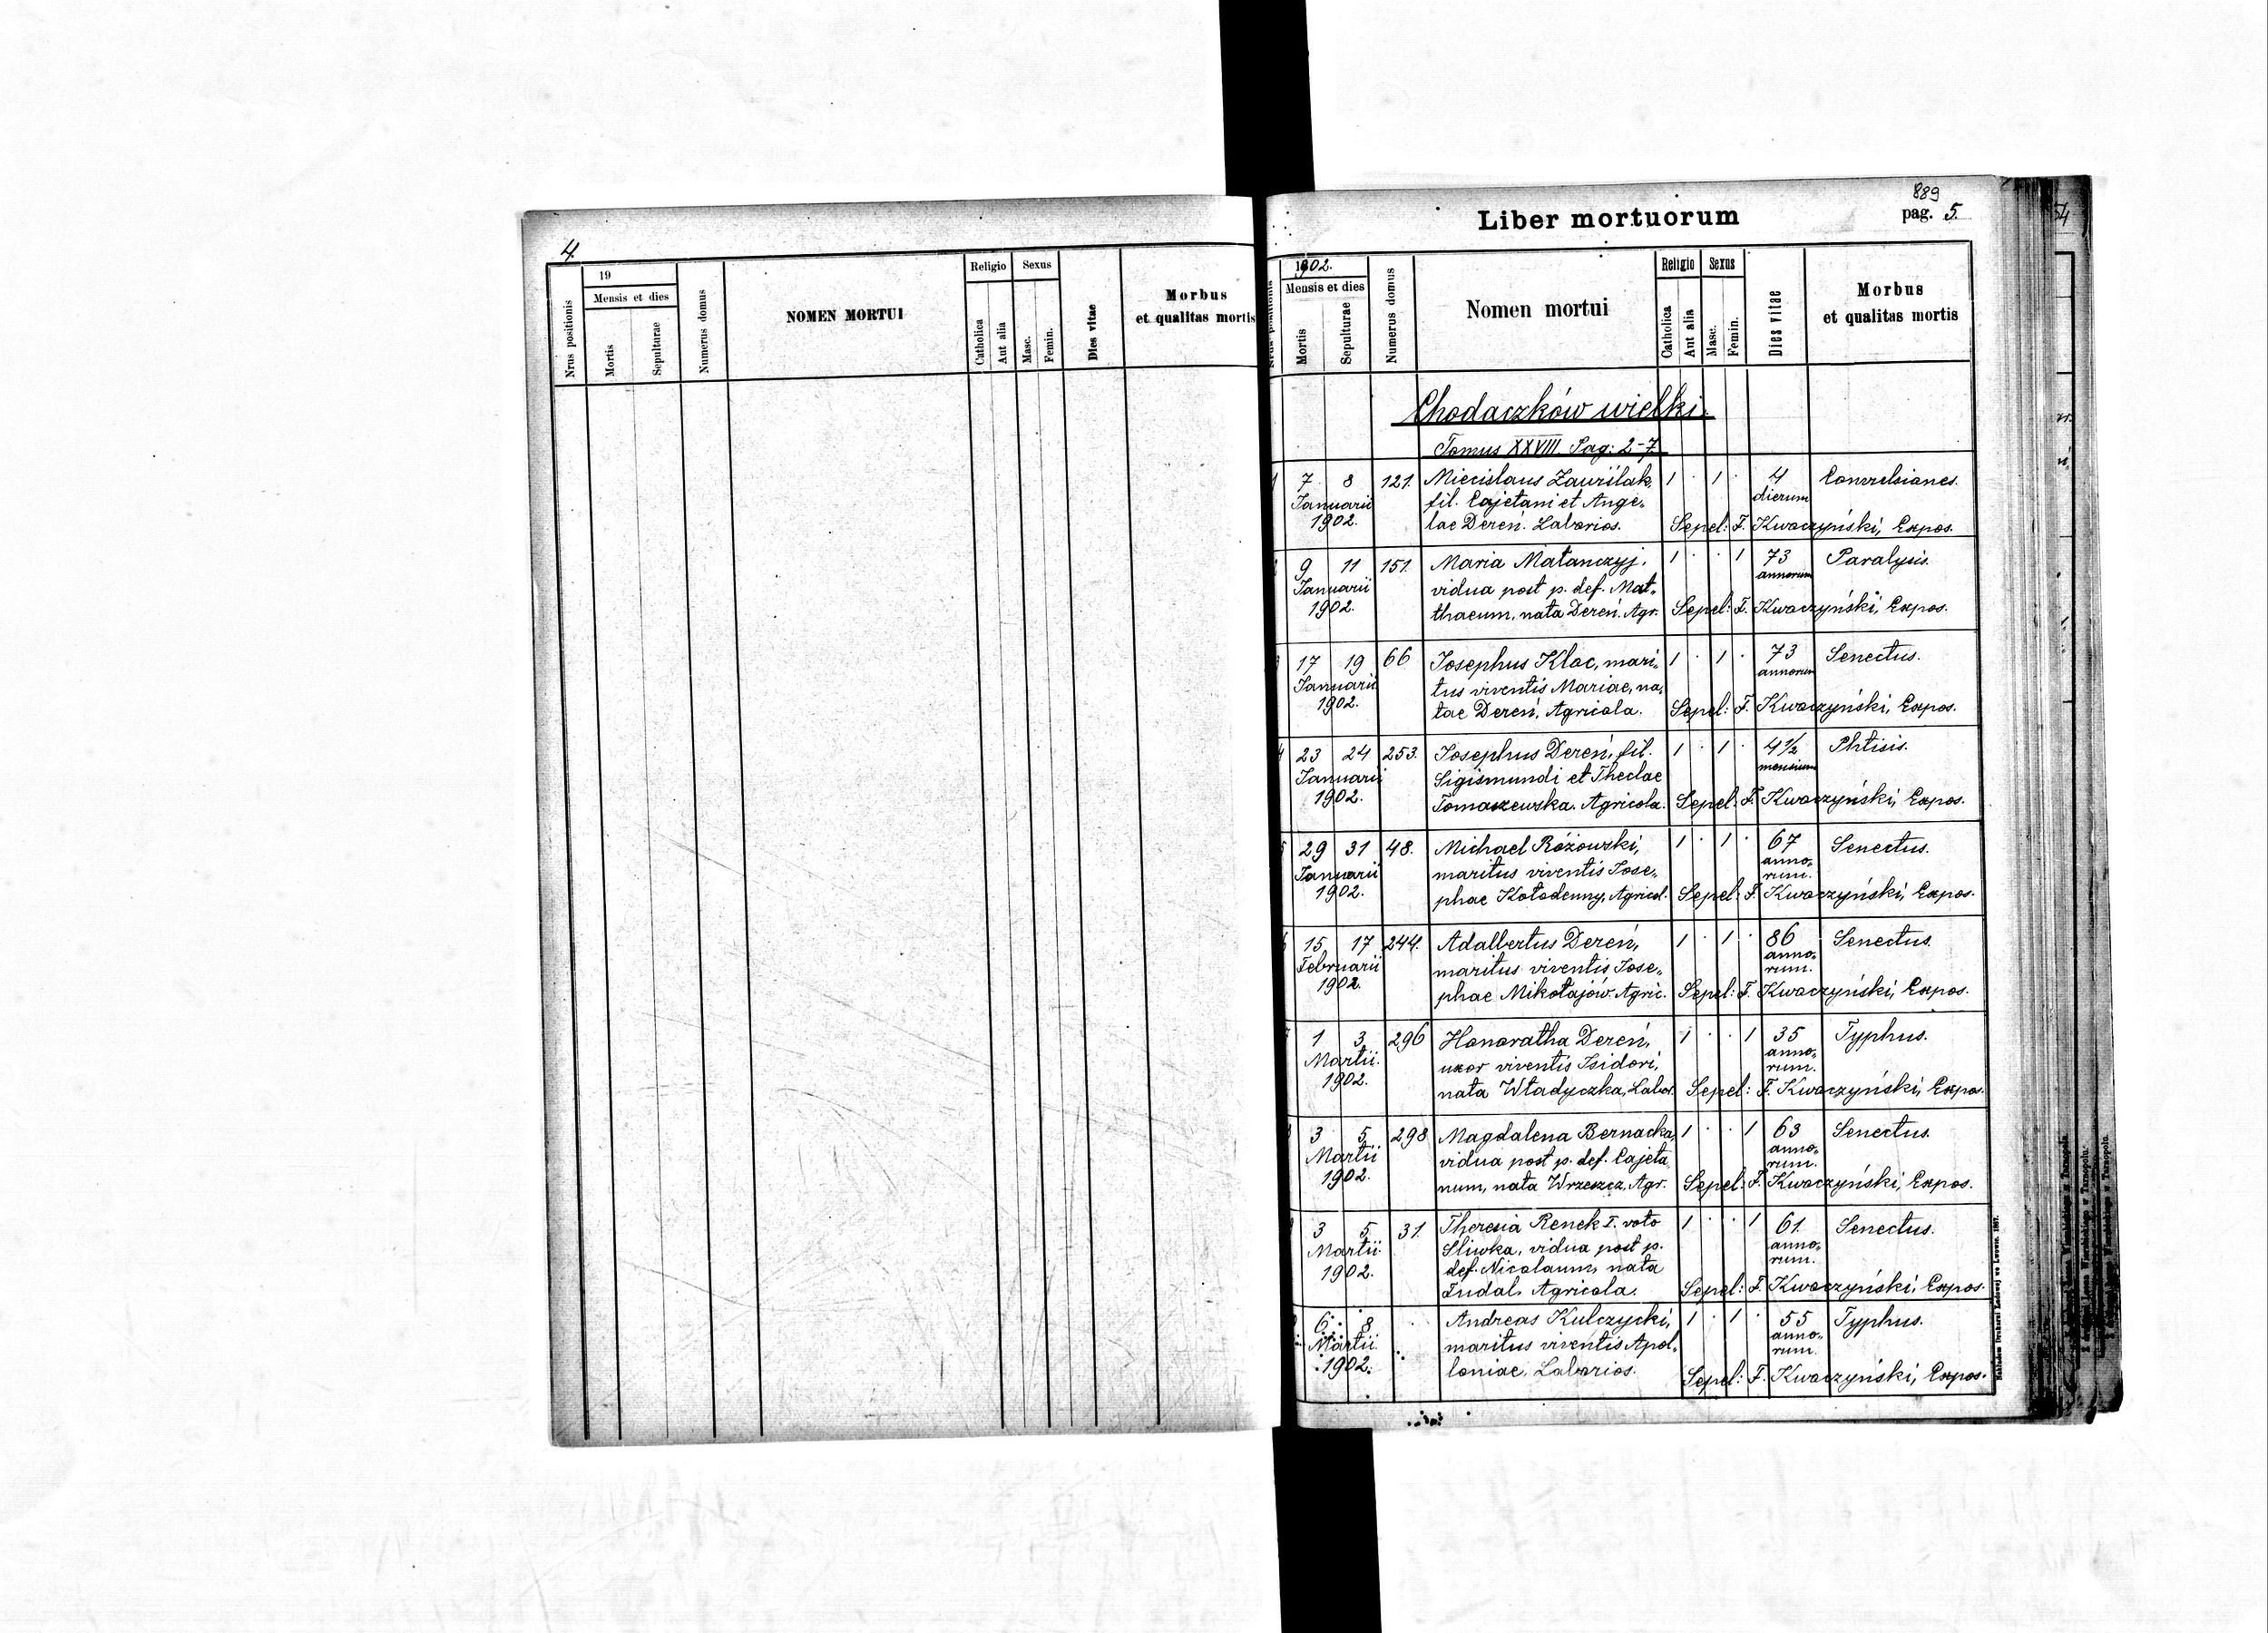 4.
19
Religio
Sexus
Nrus positionis
Mensis et dies
Mortis
Sepulturae
Numerus domus
NOMEN MORTUI
Catholica
Aut alia
Masc.
Femin.
Dies vitae
Morbus
et qualitas mortis
889
Liber mortuorum
pag. 5.
1902.
Religio
Sexus
Nrus positionis
Mensis et dies
Mortis
Sepulturae
Numerus domus
Nomen mortui
Catholica
Aut alia
Masc.
Femin.
Dies vitae
Morbus
et qualitas mortis
Chodaczków wielki.
Tomus XXVIII. Pag: 2-7
7 8 121. Miecislaus Zauśilak, 1 · 1 · 4 Convulsiones.
Januarii fil. Cajetani et Ange- dierum
1902. lae Dereń. Laborios. Sepel: F. Kwaczyński, Expos.
9 11 151. Maria Matanczyj, 1 · · 1 73 Paralysis.
Januarii vidua post p. def. Mat- annorum
1902. thaeum, nata Dereń. Agr. Sepel: F. Kwaczyński, Expos.
17 19 66 Josephus Klac, mari- 1 · 1 · 73 Senectus.
Januarii tus viventis Mariae, na- annorum
1902. tae Dereń, Agricola. Sepel: F. Kwaczyński, Expos.
23 24 253. Josephus Dereń, fil. 1 · 1 · 4½ Phtisis.
Januarii Sigismundi et Theclae mensium
1902. Tomaszewska. Agricola. Sepel: F. Kwaczyński, Expos.
29 31 48. Michael Różowski, 1 · 1 · 67 Senectus.
Januarii maritus viventis Jose- anno-
rum.
1902. phae Kołodenny, Agricol. Sepel: F. Kwaczyński, Expos.
15 17 244. Adalbertus Dereń, 1 · 1 · 86 Senectus.
Februarii maritus viventis Jose- anno-
rum.
1902. phae Mikołajów. Agric. Sepel: F. Kwaczyński, Expos.
1 3 296 Honoratha Dereń, 1 · · 1 35 Typhus.
Martii. uxor viventis Isidori, anno-
rum.
1902. nata Władyczka, Labor. Sepel: F. Kwaczyński, Expos.
3 5 298 Magdalena Bernacka, 1 · · 1 63 Senectus.
Martii vidua post p. def. Cajeta- anno-
rum.
1902. num, nata Wrzeszcz, Agr. Sepel: F. Kwaczyński, Expos.
3 5 31. Theresia Renek I. voto 1 · · 1 61. Senectus.
Martii. Śliwka, vidua post p. anno-
1902. def. Nicolaum, nata rum.
Judal. Agricola. Sepel: F. Kwaczyński, Expos.
6 8 Andreas Kulczycki, 1 · 1 · 55 Typhus.
Martii. maritus viventis Apol- anno-
rum.
1902. loniae. Laborios. Sepel: F. Kwaczyński, Expos.
Nakładem Drukarni Ludowej we Lwowie. 1897.